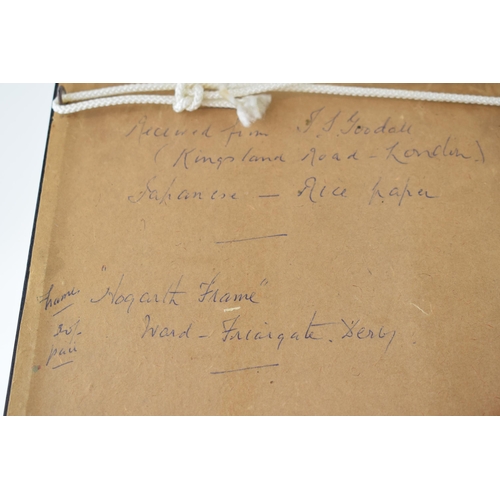 Received from J. S. Goodall
(Kingsland Road - London.)
Japanese - Rice paper
"Hogarth Frame"
Ward - Friargate. Derby
Frame
pair